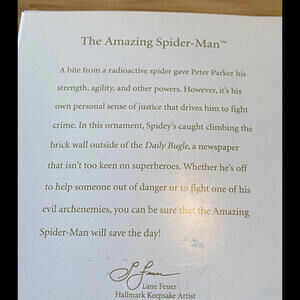 The Amazing Spider-Man™
A bite from a radioactive spider gave Peter Parker his
strength, agility, and other powers. However, it's his
own personal sense of justice that drives him to fight
crime. In this ornament, Spidey's caught climbing the
brick wall outside of the Daily Bugle, a newspaper
that isn't too keen on superheroes. Whether he's off
to help someone out of danger or to fight one of his
evil archenemies, you can be sure that the Amazing
Spider-Man will save the day!
L Feuer
Lane Feuer
Hallmark Keepsake Artist